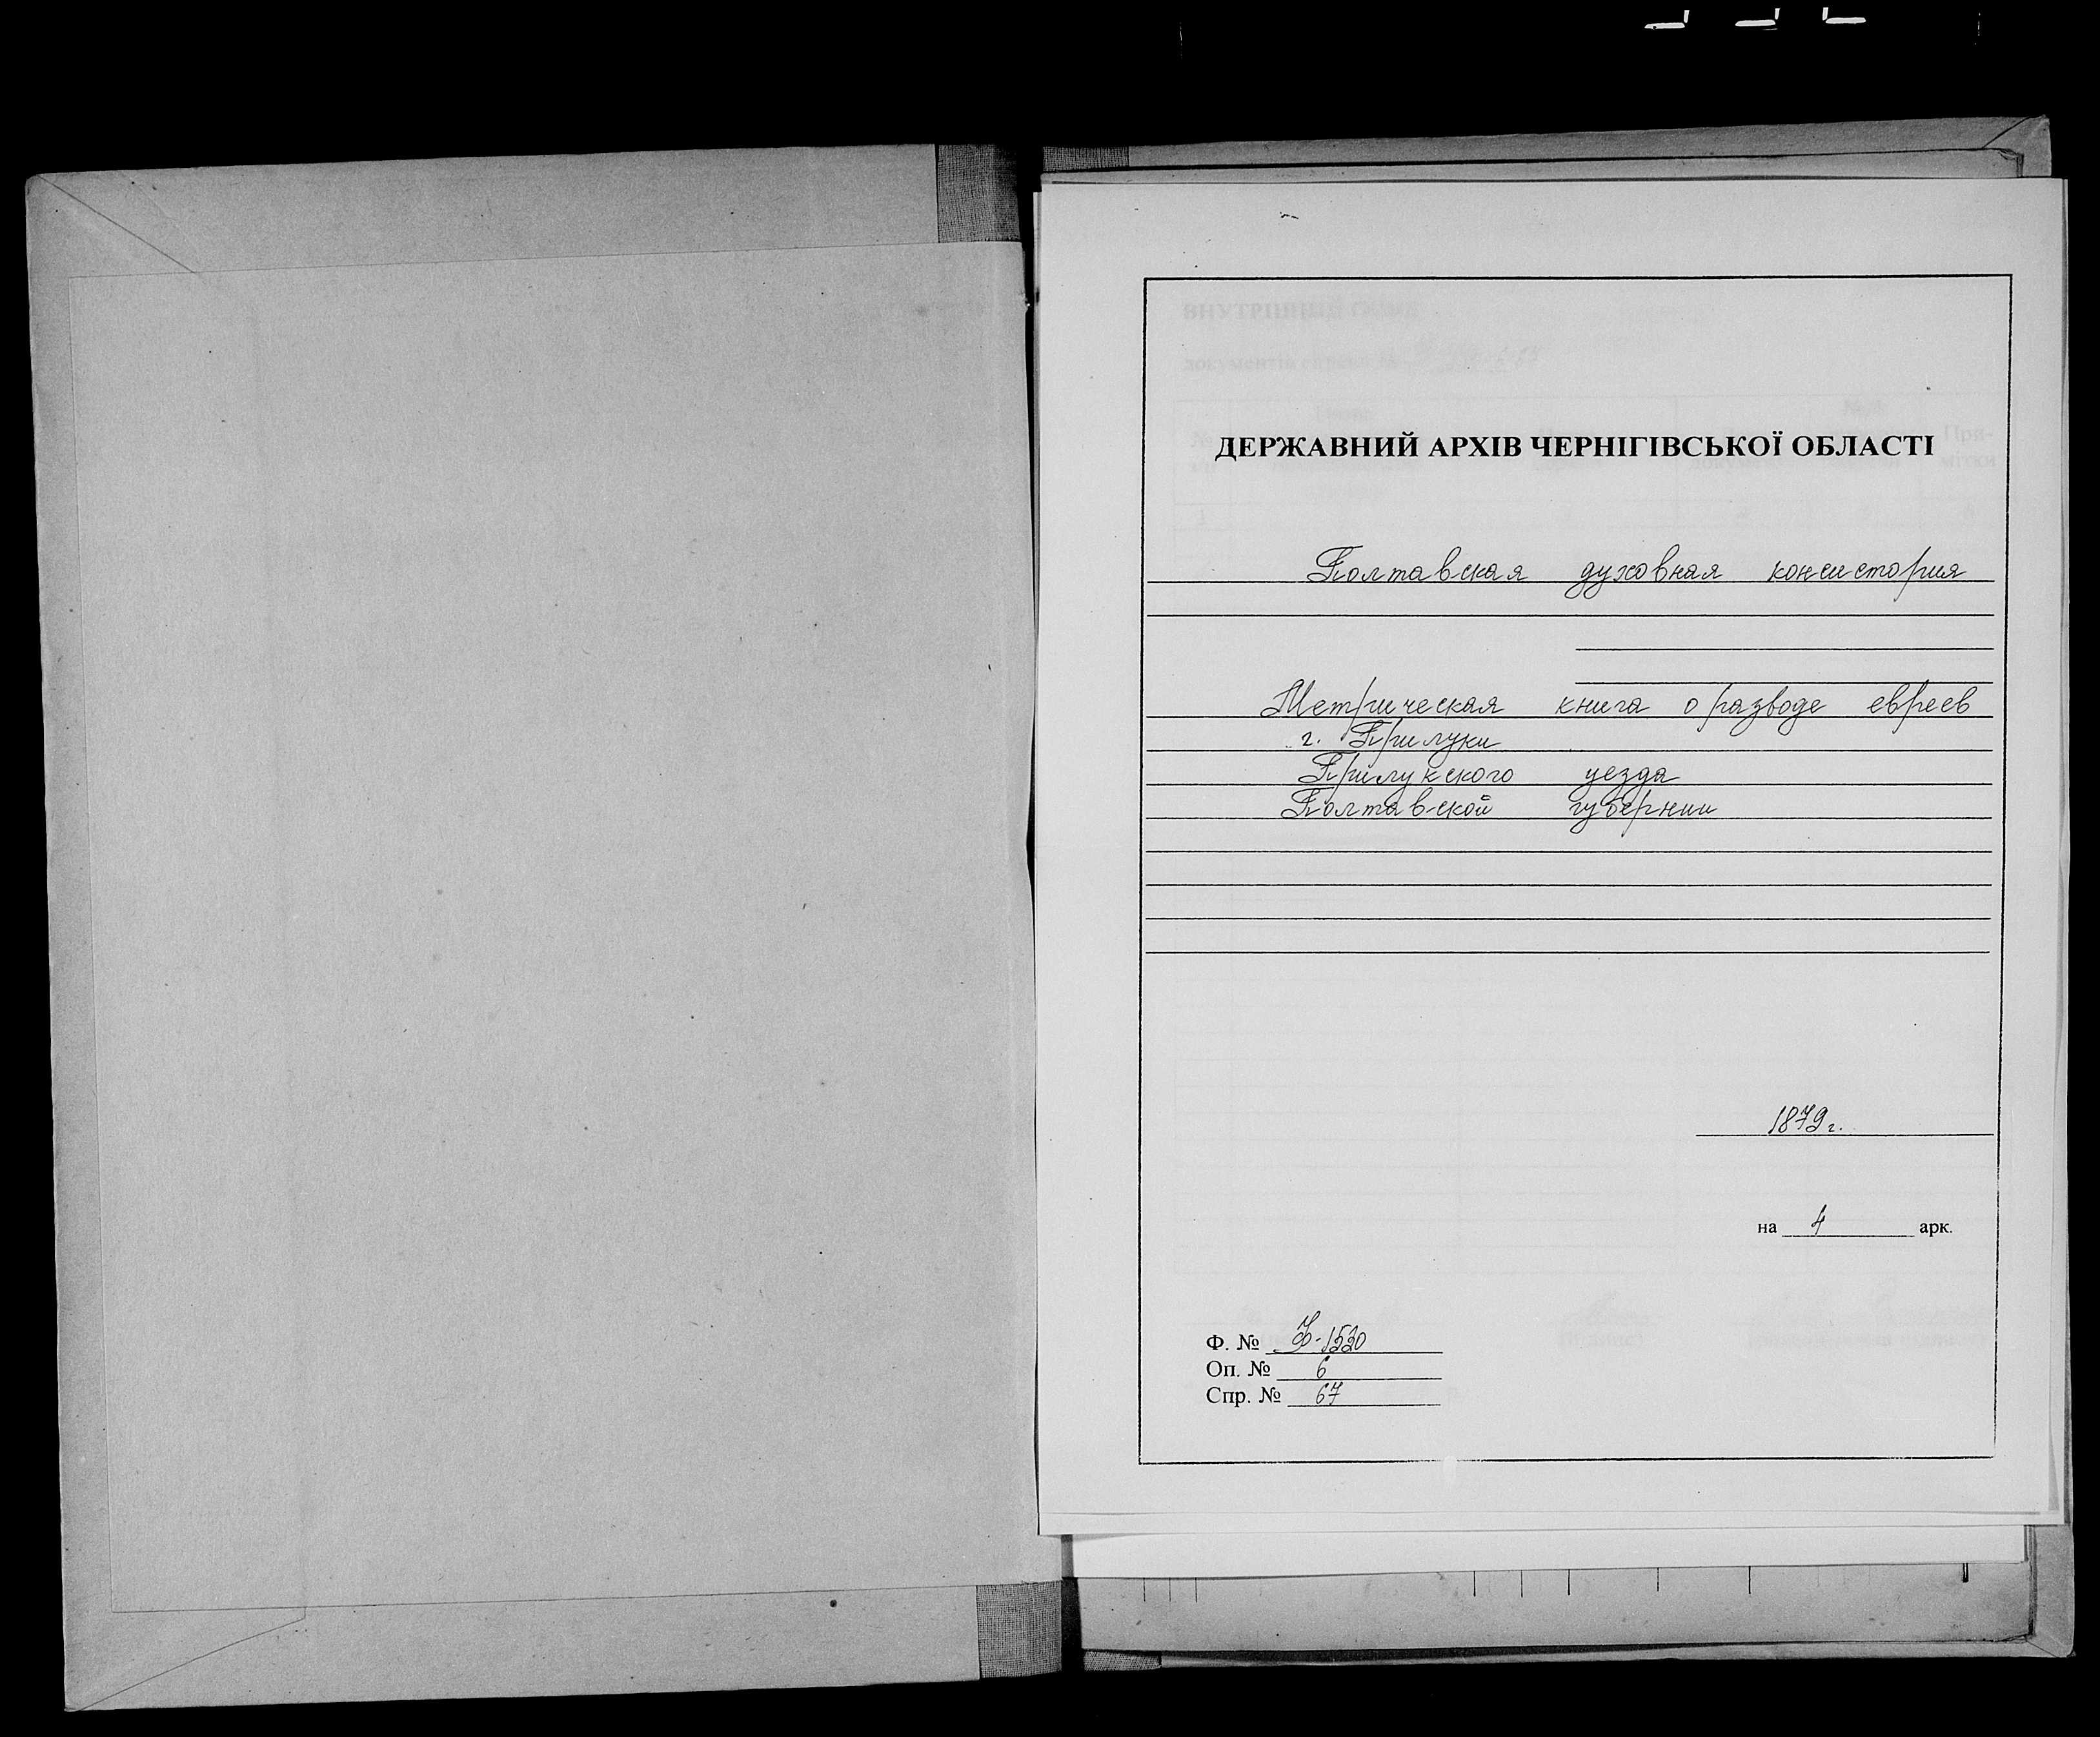 ДЕРЖАВНИЙ АРХІВ ЧЕРНІГІВСЬКОЇ ОБЛАСТІ
Полтавская духовная консистория
Метрическая книга о разводе евреев
г. Прилуки
Прилукского уезда
Полтавской губернии
1879 г.
на 4 арк.
Ф. № Ф-1520
Оп. № 6
Спр. № 67